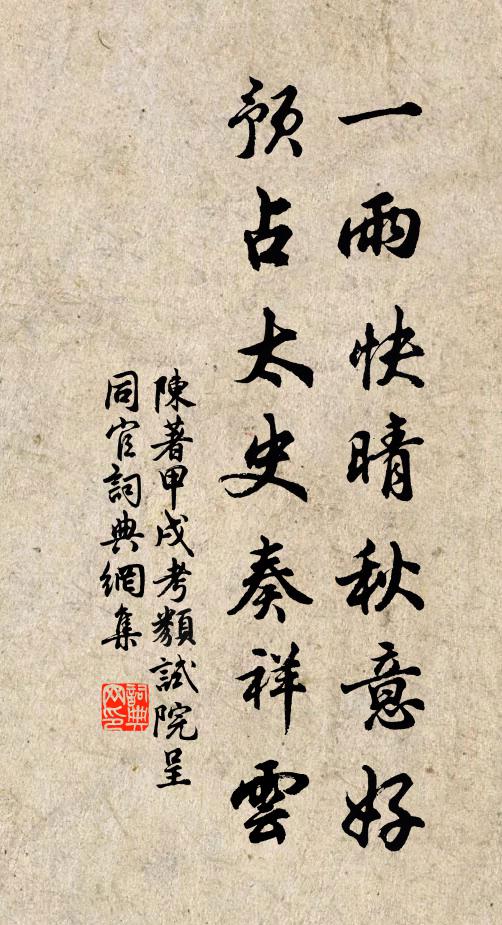 一雨快晴秋意好
預占太史奏祥雲
陳著甲戌考類試院呈
同官詞典網集
詞典网印